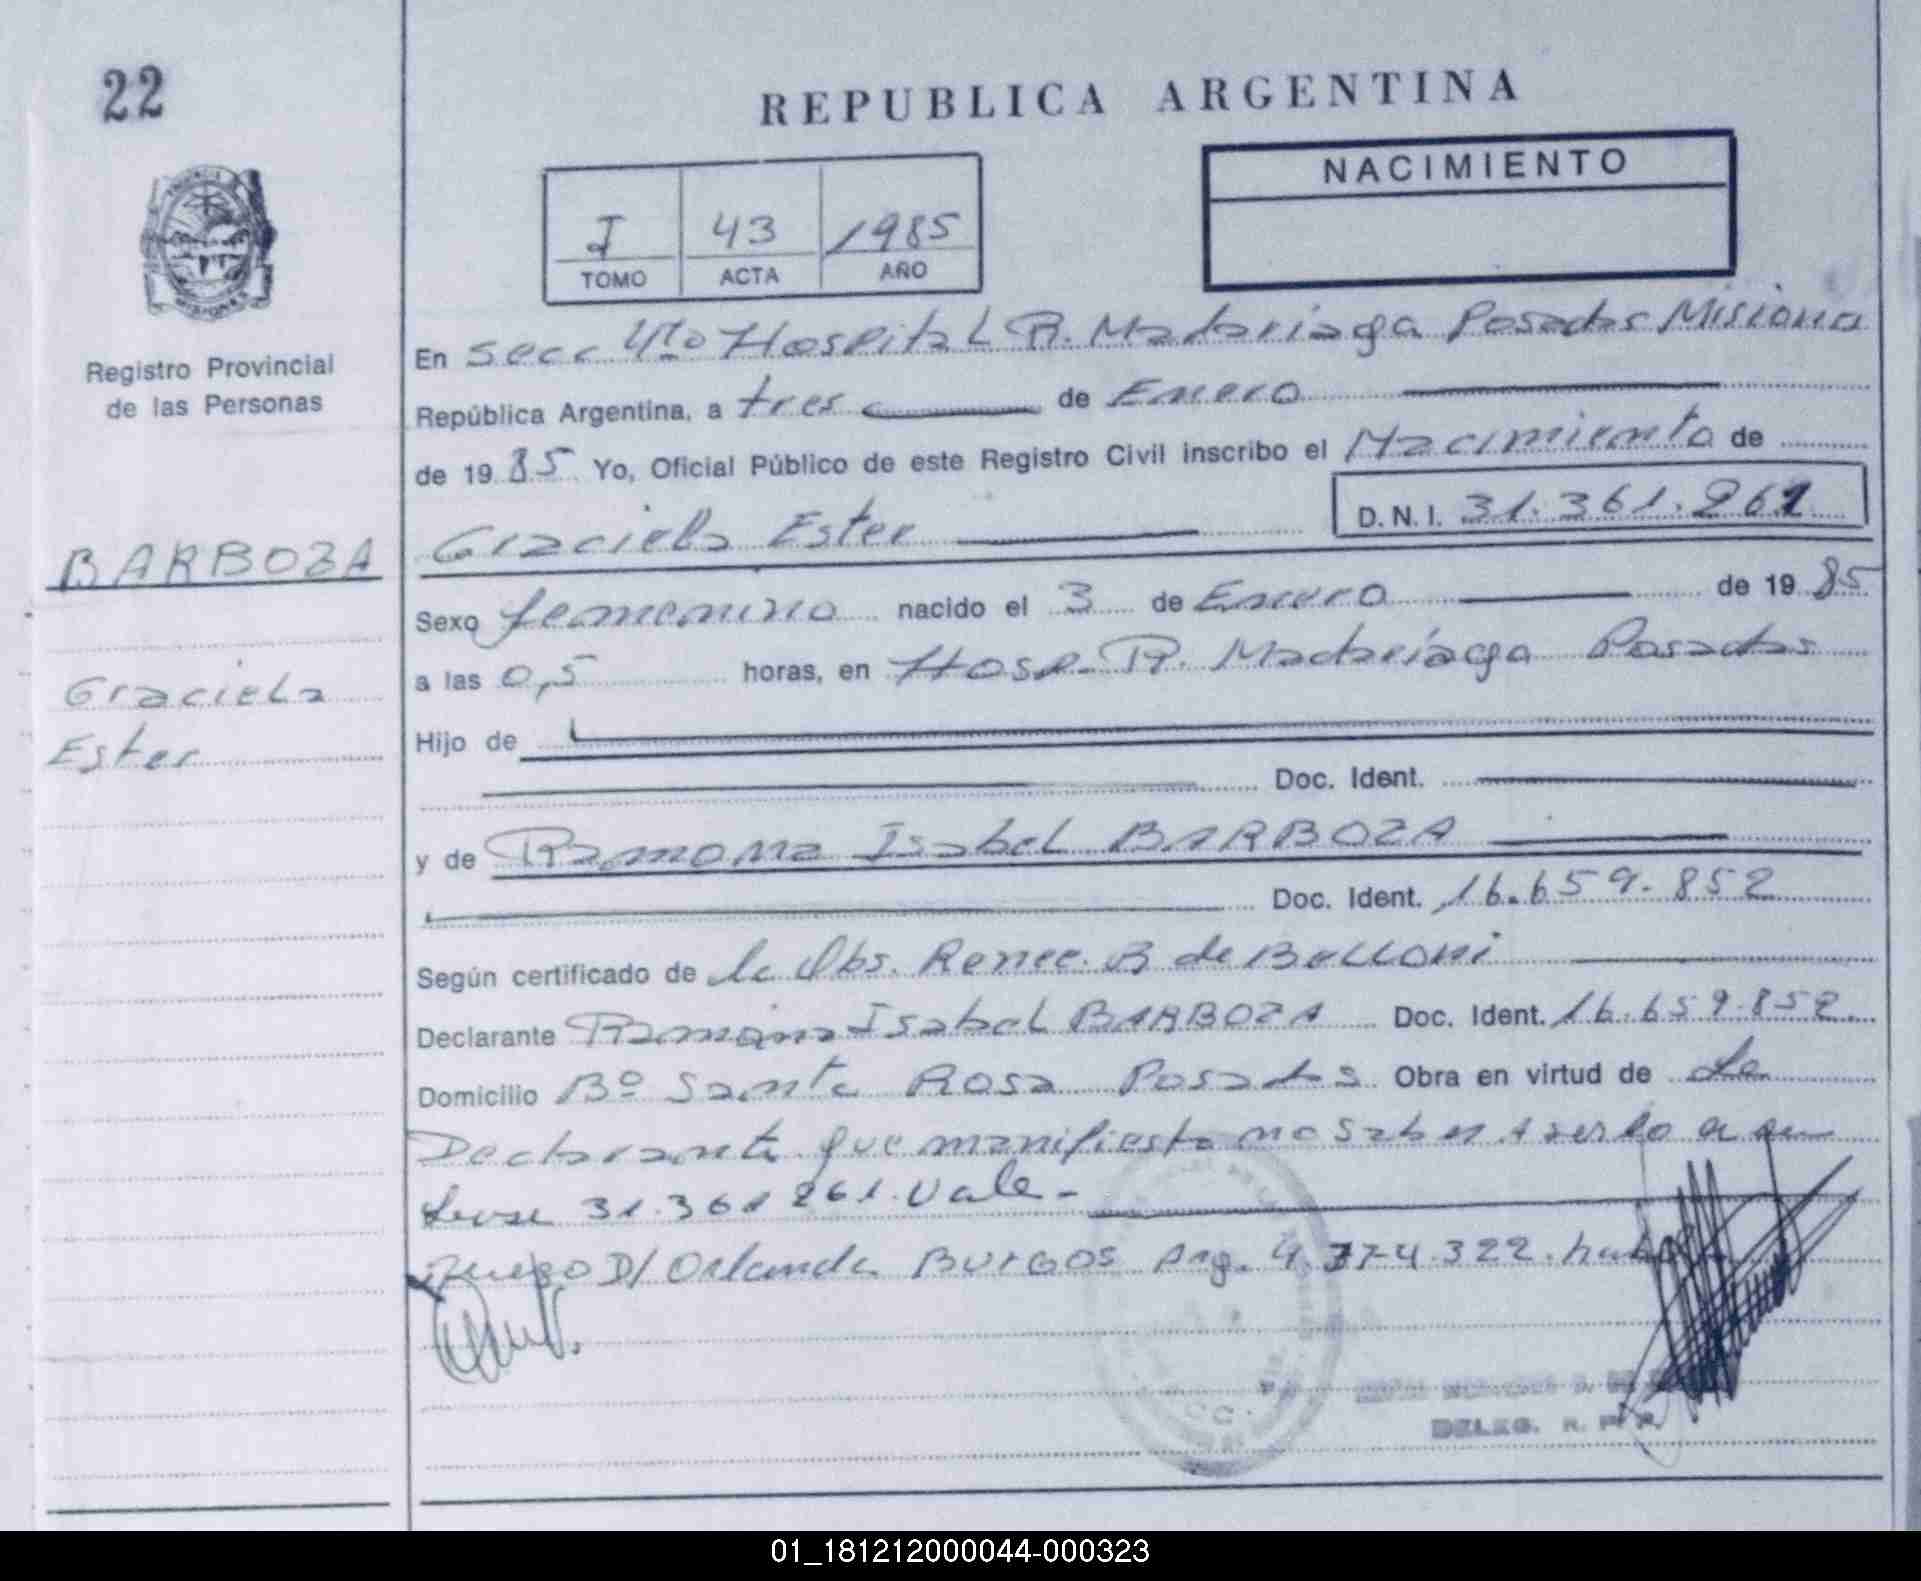 22
REPUBLICA ARGENTINA
NACIMIENTO
I 43 1985
TOMO ACTA AÑO
Registro Provincial
de las Personas
En secc 4to Hospital R. Madariaga Posadas Misiones
República Argentina, a tres de Enero
de 1985 Yo, Oficial Público de este Registro Civil inscribo el Nacimiento de
Graciela Ester D.N.I. 31.361.261
BARBOZA
Graciela
Ester
Sexo femenino nacido el 3 de Enero de 1985
a las 0,5 horas, en Hosp. R. Madariaga Posadas
Hijo de
Doc. Ident.
y de Ramona Isabel BARBOZA
Doc. Ident. 16.659.852
Según certificado de la Obs. Renee. B de Belloni
Declarante Ramona Isabel BARBOZA Doc. Ident. 16.659.852
Domicilio Bº Santa Rosa Posadas Obra en virtud de La
Declarante que manifiesta no saber hacerlo a su
31.361 261. Vale-
ruego D/ Orlanda BURGOS Arg. 4.774.322.
DELEG. R. P. P.
01_181212000044-000323